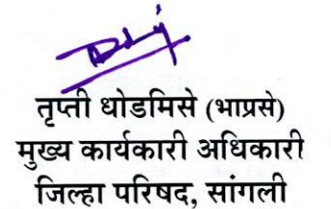 तृप्ती धोडमिसे (भाप्रसे)
मुख्य कार्यकारी अधिकारी
जिल्हा परिषद, सांगली